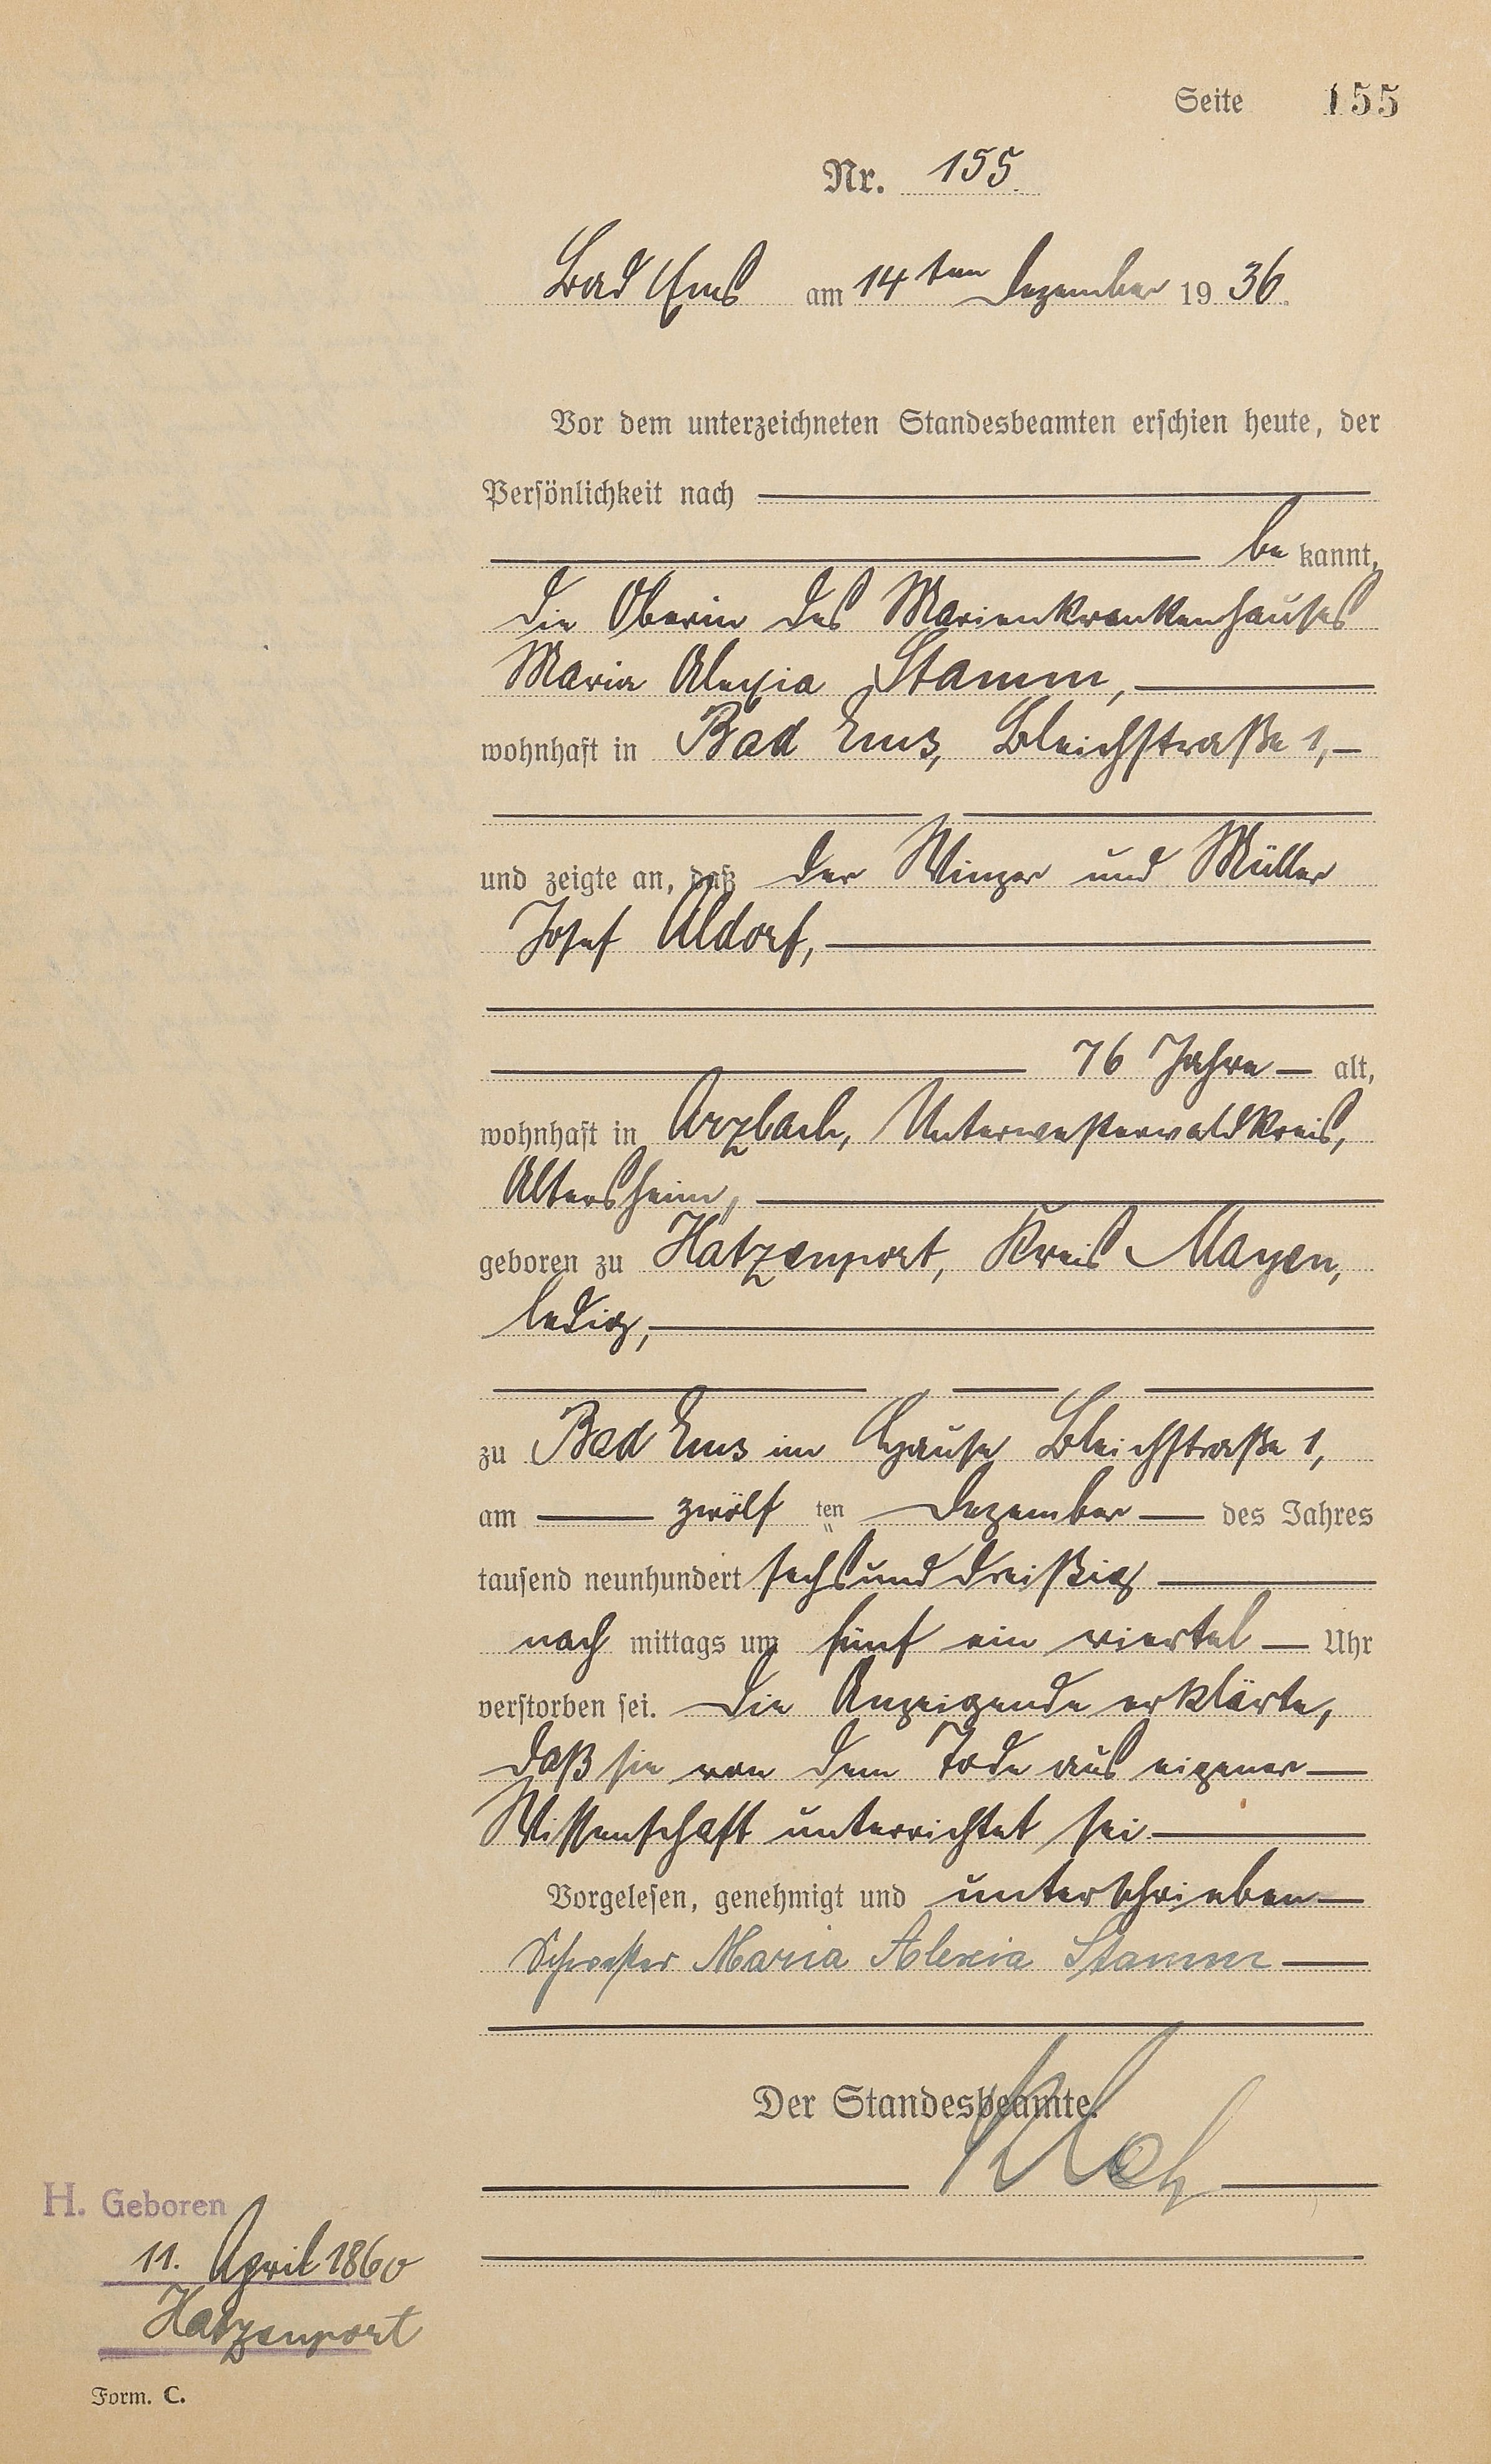 Seite 155
Nr. 155.
Bad Ems am 14ten Dezember 1936.
Vor dem unterzeichneten Standesbeamten erschien heute, der
Persönlichkeit nach
bekannt,
die Oberin des Marienkrankenhauses
Maria Alexia Stamm,
wohnhaft in Bad Ems, Bleichstraße 1,
und zeigte an, daß der Winzer und Müller
Josef Aldorf,
76 Jahre alt,
wohnhaft in Arzbach, Unterwesterwaldkreis,
Altersheim,
geboren zu Hatzenport, Kreis Mayen,
ledig,
zu Bad Ems im Hause Bleichstraße 1,
am zwölf ten Dezember des Jahres
tausend neunhundert sechsunddreißig
nach mittags um fünf ein viertel Uhr
verstorben sei. Die Anzeigende erklärte,
daß sie von dem Tode aus eigener
Wissenschaft unterrichtet sei.
Vorgelesen, genehmigt und unterschrieben
Schwester Maria Alexia Stamm
Der Standesbeamte.
H. Geboren
11. April 1860
Hatzenport
Form. C.